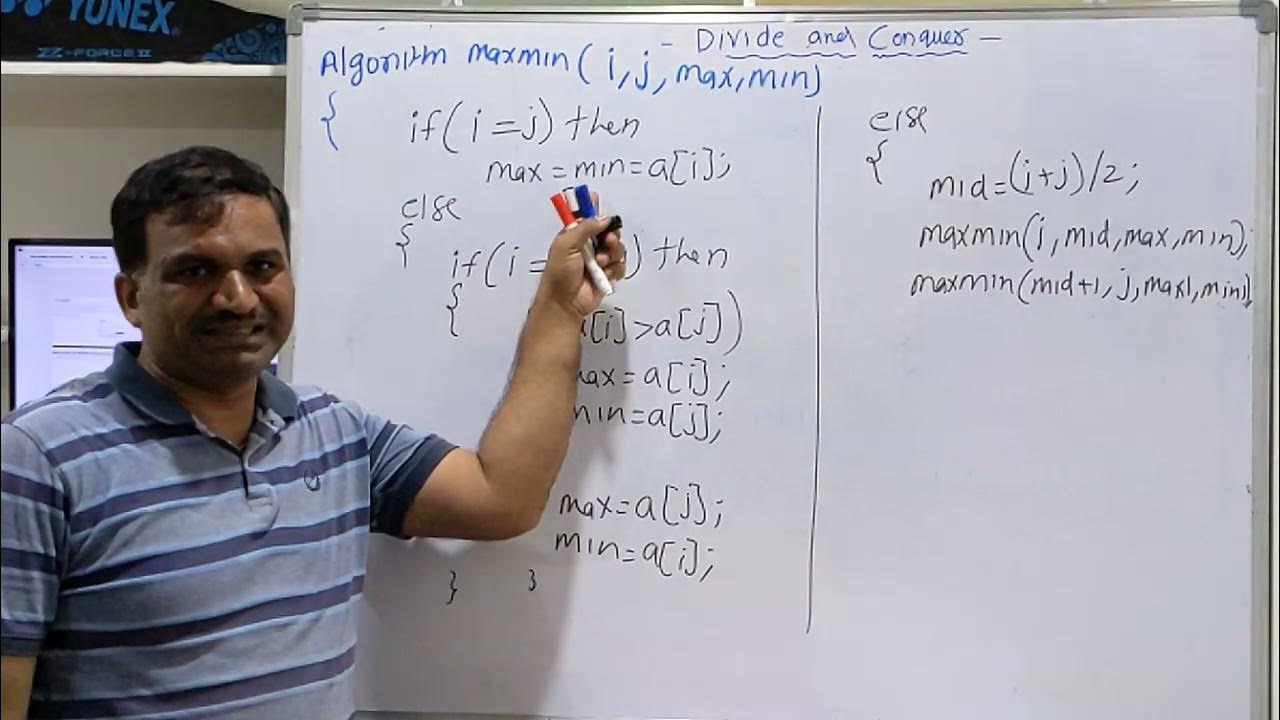 YONEX
Z-FORCE II
- Divide and Conquer -
Algorithm maxmin(i,j,max,min)
{
if(i=j) then
max=min=a[i];
else
{
if(i= ) then
{
[i]>a[j])
max=a[i];
min=a[j];
max=a[j];
min=a[i];
} }
else
{
mid=(i+j)/2;
maxmin(i,mid,max,min);
maxmin(mid+1,j,max1,min1)